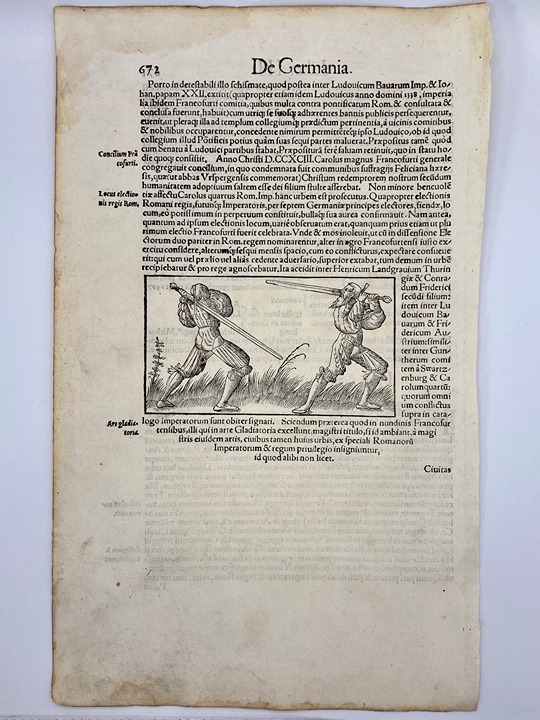 672
De Germania.
Porto in detestabili illo schismate, quod postea inter Ludouicum Bauarum Imp. & Io-
han. papam XXII. extitit (quapropter etiam idem Ludouicus anno domini 1338. imperia
lia ibidem Francofurti comitia, quibus multa contra pontificatum Rom. & consultata &
conclusa fuerunt, habuit) cum utriq; se suosq; adhærentes bannis publicis persequerentur,
euenit, ut pleraq; illa ad templum collegiumq; prædictum pertinentia, à uicinis comitibus
& nobilibus occuparentur, concedente nimirum permittéteq; ipso Ludouico, ob id quod
collegium illud Pótificis potius quàm suas sequi partes maluerat. Præpositus tamē quòd
cum senatu à Ludouici partibus stabat, Præpositurā ferè saluam retinuit, quo in statu ho-
Concilium Frā
cofurti.
die quoq; consistit, Anno Christi D.CCXCIII. Carolus magnus Francofurti generale
congregauit concilium, in quo condemnata fuit communibus suffragijs Feliciana hære-
sis, quæ (ut abbas Vrspergensis commemorat) Christum redemptorem nostrum secūdum
humanitatem adoptiuum saltem esse dei filium stulte asserebat. Non minore beneuolē
Locus electio
nis regis Rom.
tiæ affectu Carolus quartus Rom. Imp. hanc urbem est prosecutus. Quapropter electionis
Romani regis, futuriq; Imperatoris, per septem Germaniæ principes electores, fiendæ, lo
cum, eò potissimum in perpetuum constituit, bullaq; sua aurea confirmauit. Nam antea,
quantum ad ipsum electionis locum, uariè obseruatum erat, quanquam prius etiam ut plu
rimum electio Francofurti fuerit celebrata. Vnde & mos inoleuit, ut cū in dissensione Ele
ctorum duo pariter in Rom. regem nominarentur, alter in agro Francofurtensi iusto ex-
ercitu considere, alterumq; sesqui mensis spacio, cum eo conflicturus, expectare consueue
rit: qui cum uel prælio uel aliàs cedente aduersario, superior extabat, tum demum in urbē
recipiebatur & pro rege agnoscebatur. Ita accidit inter Henricum Landgrauium Thurin
giæ & Conra-
dum Friderici
secūdi filium:
item inter Lu
douicum Ba-
uarum & Fri-
dericum Au-
strium: simili-
ter inter Gun-
therum comi
tem à Swartz-
enburg & Ca
rolum quartū:
quorum omni
um conflictus
supra in cata-
logo imperatorum sunt obiter signati. Sciendum præterea quod in nundinis Francofur
Ars gladia-
toria.
tensibus, illi qui in arte Gladiatoria excellunt, magistri titulo, si id ambiant, à magi
stris eiusdem artis, ciuibus tamen huius urbis, ex speciali Romanorū
Imperatorum & regum priuilegio insigniuntur,
id quod alibi non licet.
Ciuitas